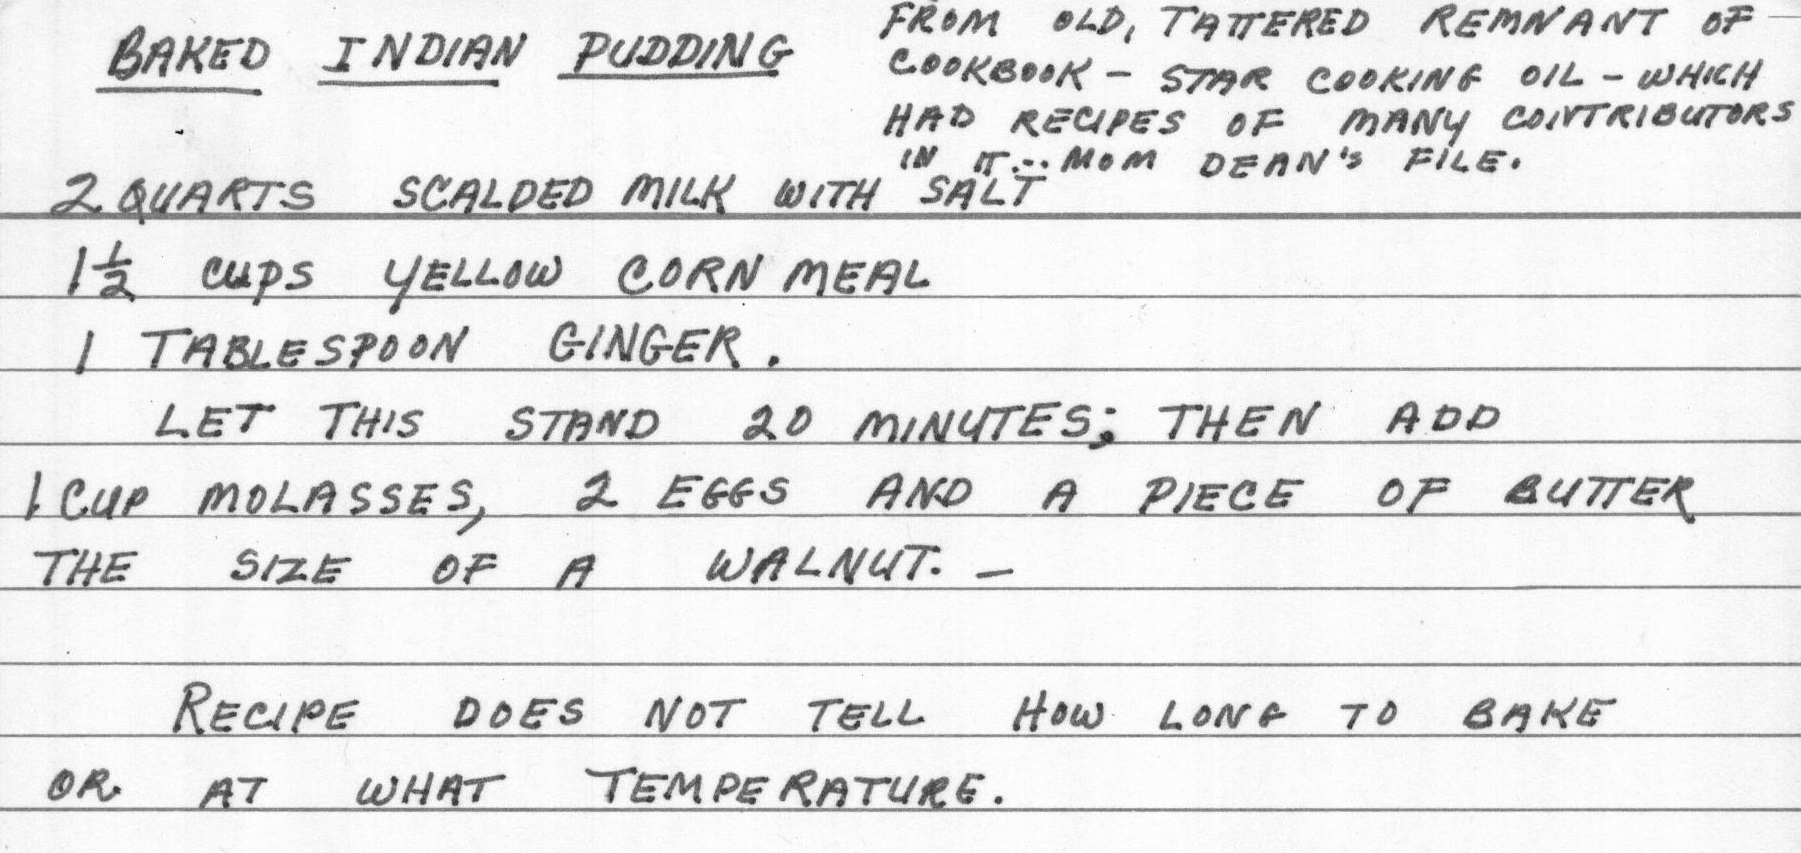 BAKED INDIAN PUDDING
FROM OLD, TATTERED REMNANT OF
COOKBOOK - STAR COOKING OIL - WHICH
HAD RECIPES OF MANY CONTRIBUTORS
IN IT... MOM DEAN'S FILE.
2 QUARTS SCALDED MILK WITH SALT
1 1/2 CUPS YELLOW CORN MEAL
1 TABLESPOON GINGER.
LET THIS STAND 20 MINUTES; THEN ADD
1 CUP MOLASSES, 2 EGGS AND A PIECE OF BUTTER
THE SIZE OF A WALNUT. -
RECIPE DOES NOT TELL HOW LONG TO BAKE
OR AT WHAT TEMPERATURE.